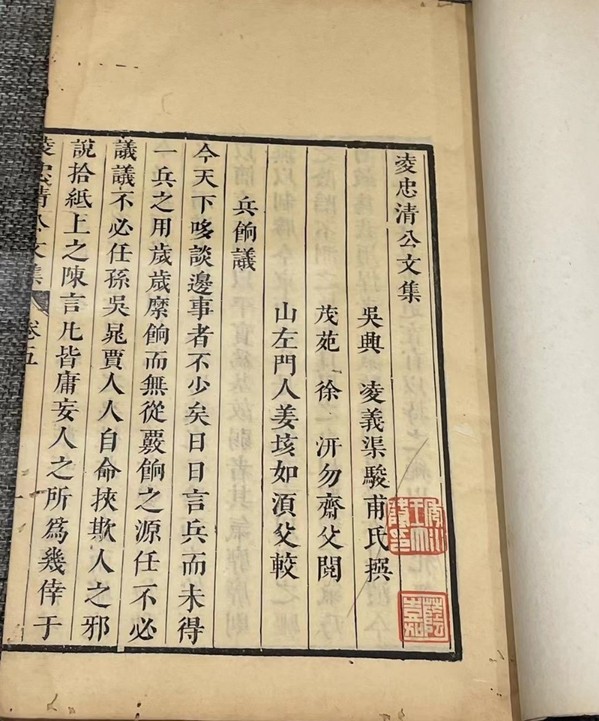 凌忠清公文集
吳興 凌義渠駿甫氏撰
茂苑 徐 汧勿齋父閱
山左門人姜垓如須父較
兵餉議
今天下哆談邊事者不少矣日日言兵而未得
一兵之用歲歲縻餉而無從覈餉之源任不必
議議不必任孫吳晁賈人人自命挾欺人之邪
說拾紙上之陳言凡皆庸妄人之所爲幾倖于
凌忠清公文集 卷五